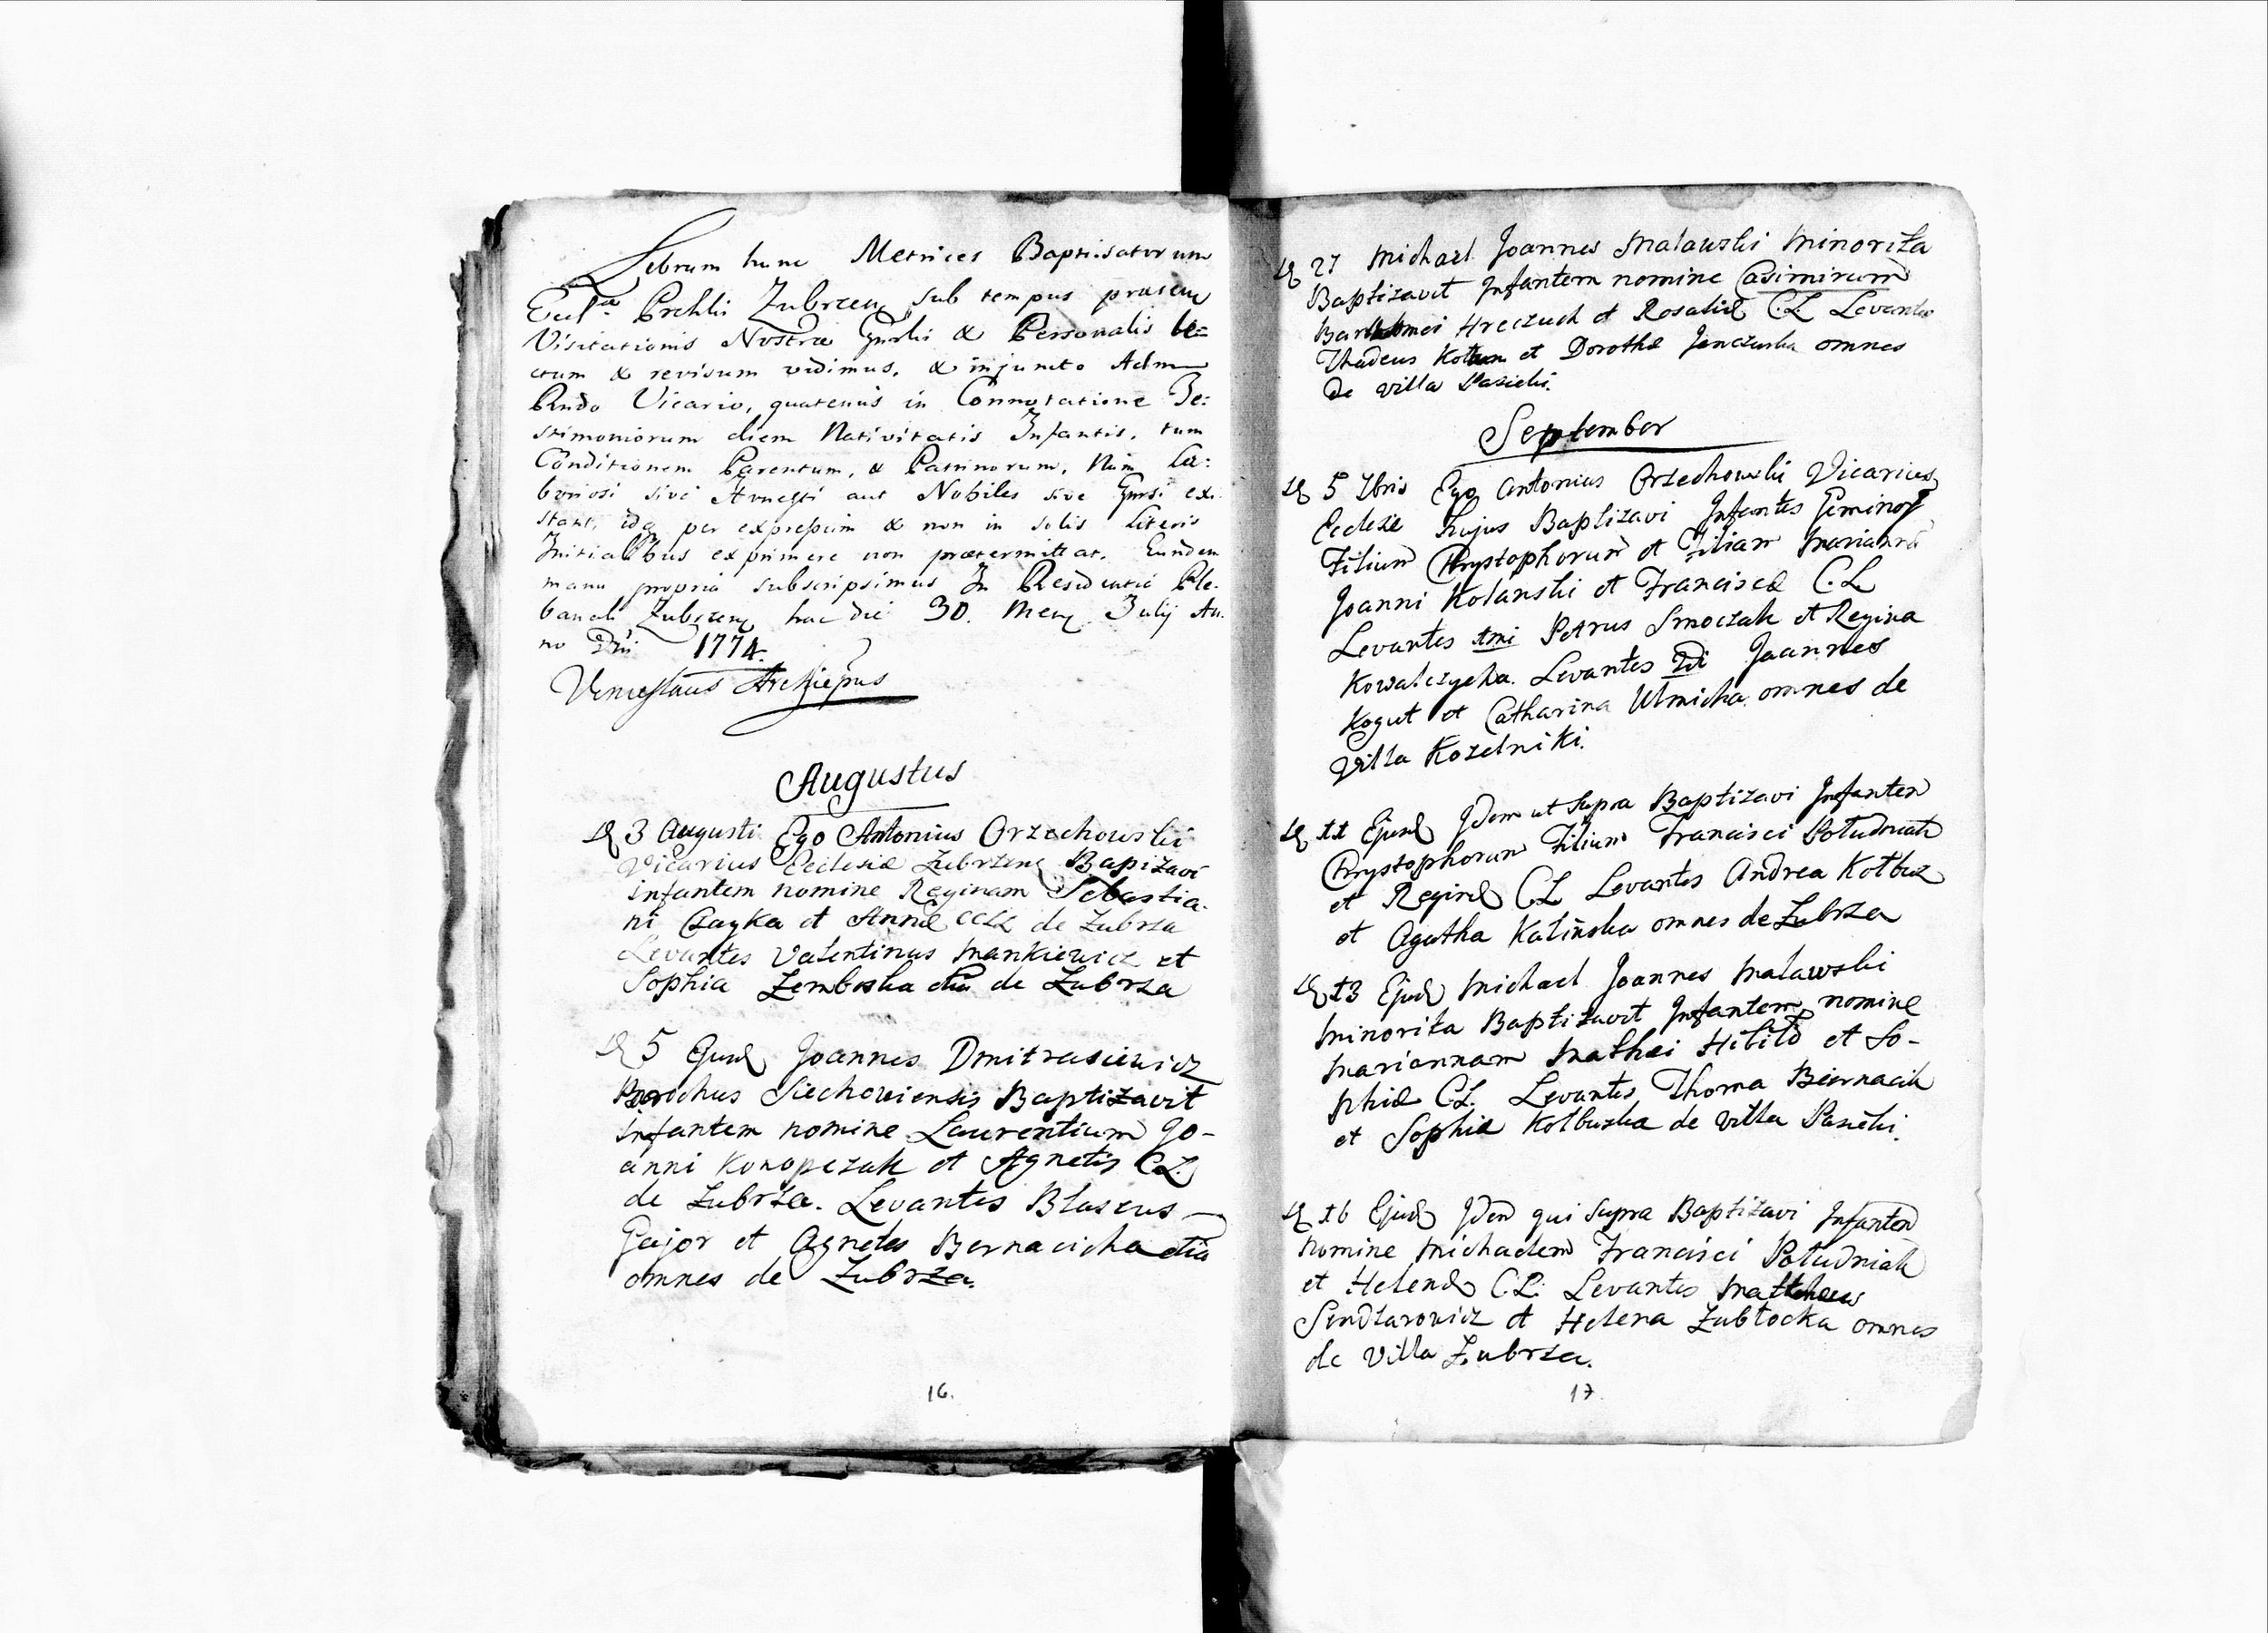 Librum hunc Metrices Baptisatorum
Eccl~ae Prchlis Zubrzen sub tempus præsens
Visitationis Nostræ Gnrlis & Personalis le=
ctum & revisum vidimus, & injuncto Adm
Rndo Vicario, quatenus in Connotatione Te:
stimoniorum diem Nativitatis Infantis, tum
Conditionem Parentum, & Patrinorum, Num La:
boriosi sive Honesti aut Nobiles sive Gnrsi exi
stant, idq per expressum & non in solis literis
Initialibus exprimere non prætermittat. Eundem
manu propria subscripsimus In Residentia Ple-
banali Zubrzen hac die 30. Mens Julij An-
no Dni 1774.
Venceslaus Archiepus
Augustus
D 3 Augusti Ego Antonius Orzechowski
Vicarius Ecclesiæ Zubrzens Baptizavi
infantem nomine Reginam Sebastia-
ni Czayka et Annæ CCLL de Zubrza
Levantes Valentinus Mankiewicz et
Sophia Zembska de Zubrza
D 5 Ejusd Joannes Dmitrasiewicz
Parochus Siechoviensis Baptizavit
Infantem nomine Laurentium Jo-
anni Konopczak et Agnetis C.L.
de Zubrza. Levantes Blasius
Gajor et Agnetes Bernacicha etia
omnes de Zubrza.
16.
D 27 Michael Joannes Malawski Minorita
Baptizavit Infantem nomine Casimirum
Bartholomei Hreczuch et Rosaliæ C.L. Levantes
Thadeus et Dorothe Janczurka omnes
de villa Pasieki.
September
D 5 7bris Ego Antonius Orzechowski Vicarius
Eccleze hujus Baptizavi Infantes Geminos
Filium Chrystophorum et Filiam Mariannã
Joanni Kolanski et Franciscæ C.L.
Levantes 1mi Petrus Smoczak et Regina
Kowalczycha. Levantes 2di Joannes
Kogut et Catharina Ulmicha omnes de
Villa Kozelniki.
D 11 Ejusd Idem ut Supra Baptizavi Infantem
Chrystophorum Filium Francisci Poludniak
et Reginæ C.L. Levantes Andrea Kołbuz
et Agatha Kalinska omnes de Zubrza
D 13 Ejusd Michael Joannes Malawski
Minorita Baptizavit Infantem nomine
Mariannam Mathei Hibild et So-
phiæ C.L. Levantes Thoma Biernacik
et Sophia Kolbuska de villa Pasieki.
D 16 Ejusd Idem qui Supra Baptizavi Infantem
nomine Michaelem Francisci Poludniak
et Helenæ C.L. Levantes Mattheus
Sendzarowicz et Helena Zubłocka omnes
de Villa Zubrza.
17.